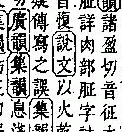 韻諸盈切音征
詳肉部字註
復說文以火
傳寫之誤集韻
廣韻集韻息